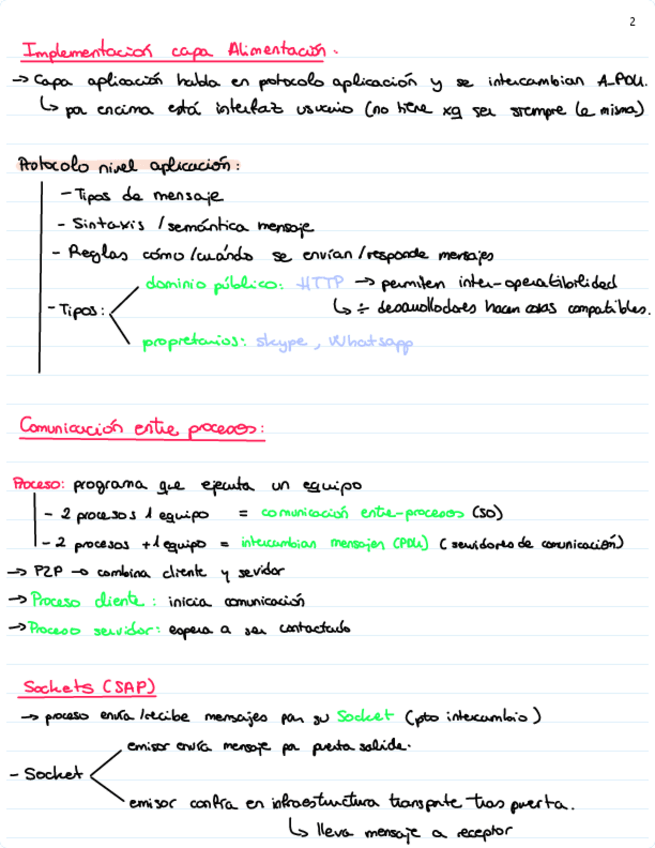 2
Implementación capa Alimentación.
→ Capa aplicación habla en protocolo aplicación y se intercambian A_PDU.
↳ por encima está interfaz usuario (no tiene xq ser siempre la misma)
Protocolo nivel aplicación:
- Tipos de mensaje
- Sintaxis / semántica mensaje
- Reglas cómo/cuándo se envían/responde mensajes
dominio público: HTTP → permiten inter-operatibilidad
- Tipos:
↳ ÷ desarrolladores hacen cosas compatibles.
propietarios: skype, Whatsapp
Comunicación entre procesos:
Proceso: programa que ejecuta un equipo
- 2 procesos 1 equipo = comunicación entre-procesos (SO)
- 2 procesos +1 equipo = intercambian mensajes (PDU) (servidores de comunicación)
→ P2P → combina cliente y sevidor
→ Proceso cliente: inicia comunicación
→ Proceso servidor: espera a ser contactado
Sockets (SAP)
→ proceso envía/recibe mensajes por su Socket (pto intercambio)
emisor envía mensaje por puerta salida.
- Socket
emisor confía en infraestructura transporte tras puerta.
↳ lleva mensaje a receptor